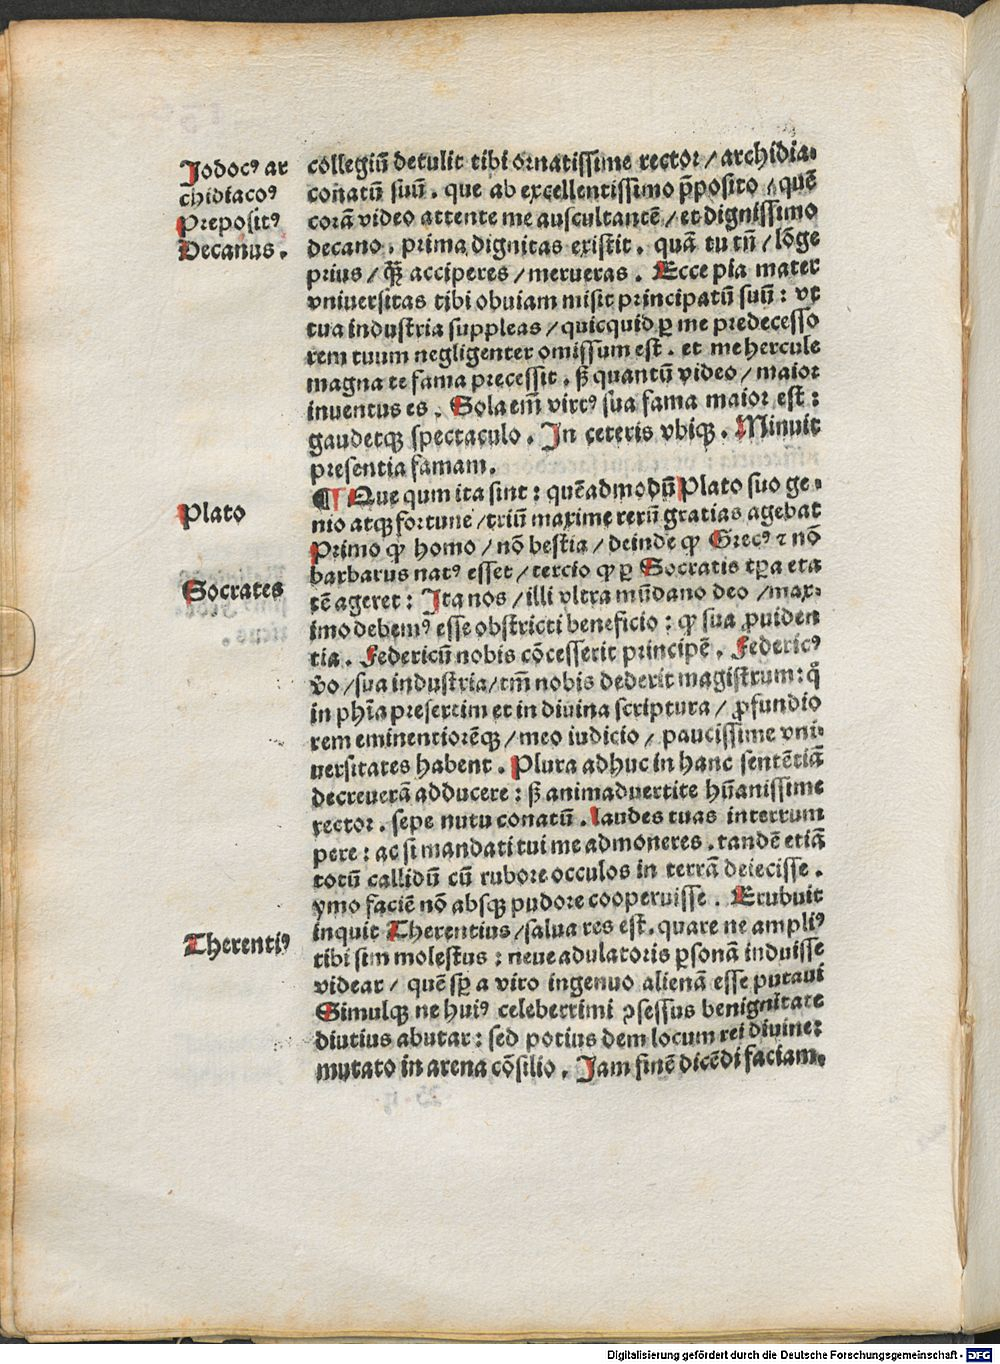 Jodocꝰ ar
chidiacoꝰ
Prepositꝰ
Decanus.
collegiū detulit tibi ornatissime rector / archidia-
conatū suū. que ab excellentissimo p̄posito / quē
corā video attente me auscultantē / et dignissimo
decano. prima dignitas existit. quā tu tn̄ / lōge
prius / q̄ꝫ acciperes / merueras. Ecce pia mater
vniuersitas tibi obuiam misit principatū suū: vt
tua industria suppleas / quicquid ꝑ me predecesso
rem tuum negligenter omissum est. et mehercule
magna te fama precessit. sꝫ quantū video / maior
inuentus es. Sola em̄ virtꝰ sua fama maior est:
gaudetqꝫ spectaculo. In ceteris vbiqꝫ. Minuit
presentia famam.
Plato
¶ Que qum ita sint: quēadmodū Plato suo ge-
nio atqꝫ fortune / triū maxime rerū gratias agebat
Primo ꝙ homo / nō bestia / deinde ꝙ Grecꝰ ⁊ nō
barbarus natꝰ esset / tercio ꝙ ꝑ Socratis tp̄a eta
Socrates
tē ageret: Ita nos / illi vltra mūdano deo / max-
imo debemꝰ esse obstricti beneficio: ꝙ sua ꝓuiden
tia. Federicū nobis cōcesserit principē. Federicꝰ
v̄o / sua industria / tm̄ nobis dederit magistrum: q̊
in phīa presertim et in diuina scriptura / ꝓfundio
rem eminentiorēqꝫ / meo iudicio / paucissime vni-
uersitates habent. Plura adhuc in hanc sentētiā
decreuerā adducere: sꝫ animaduertite hūanissime
rector. sepe nutu conatū. laudes tuas interrum
pere: ac si mandati tui me admoneres. tandē etiā
totū callidū cū rubore occulos in terrā deiecisse.
ymo faciē nō absqꝫ pudore cooperuisse. Erubuit
Therentiꝰ
inquit Therentius / salua res est. quare ne ampliꝰ
tibi sim molestus: neue adulatoris ꝑsonā induisse
videar / quē sp̄ a viro ingenuo alienā esse putaui
Simulqꝫ ne huiꝰ celeberrimi ꝯsessus benignitate
diutius abutar: sed potius dem locum rei diuine:
mutato in arena cōsilio. Jam finē dicēdi faciam.
Digitalisierung gefördert durch die Deutsche Forschungsgemeinschaft - DFG